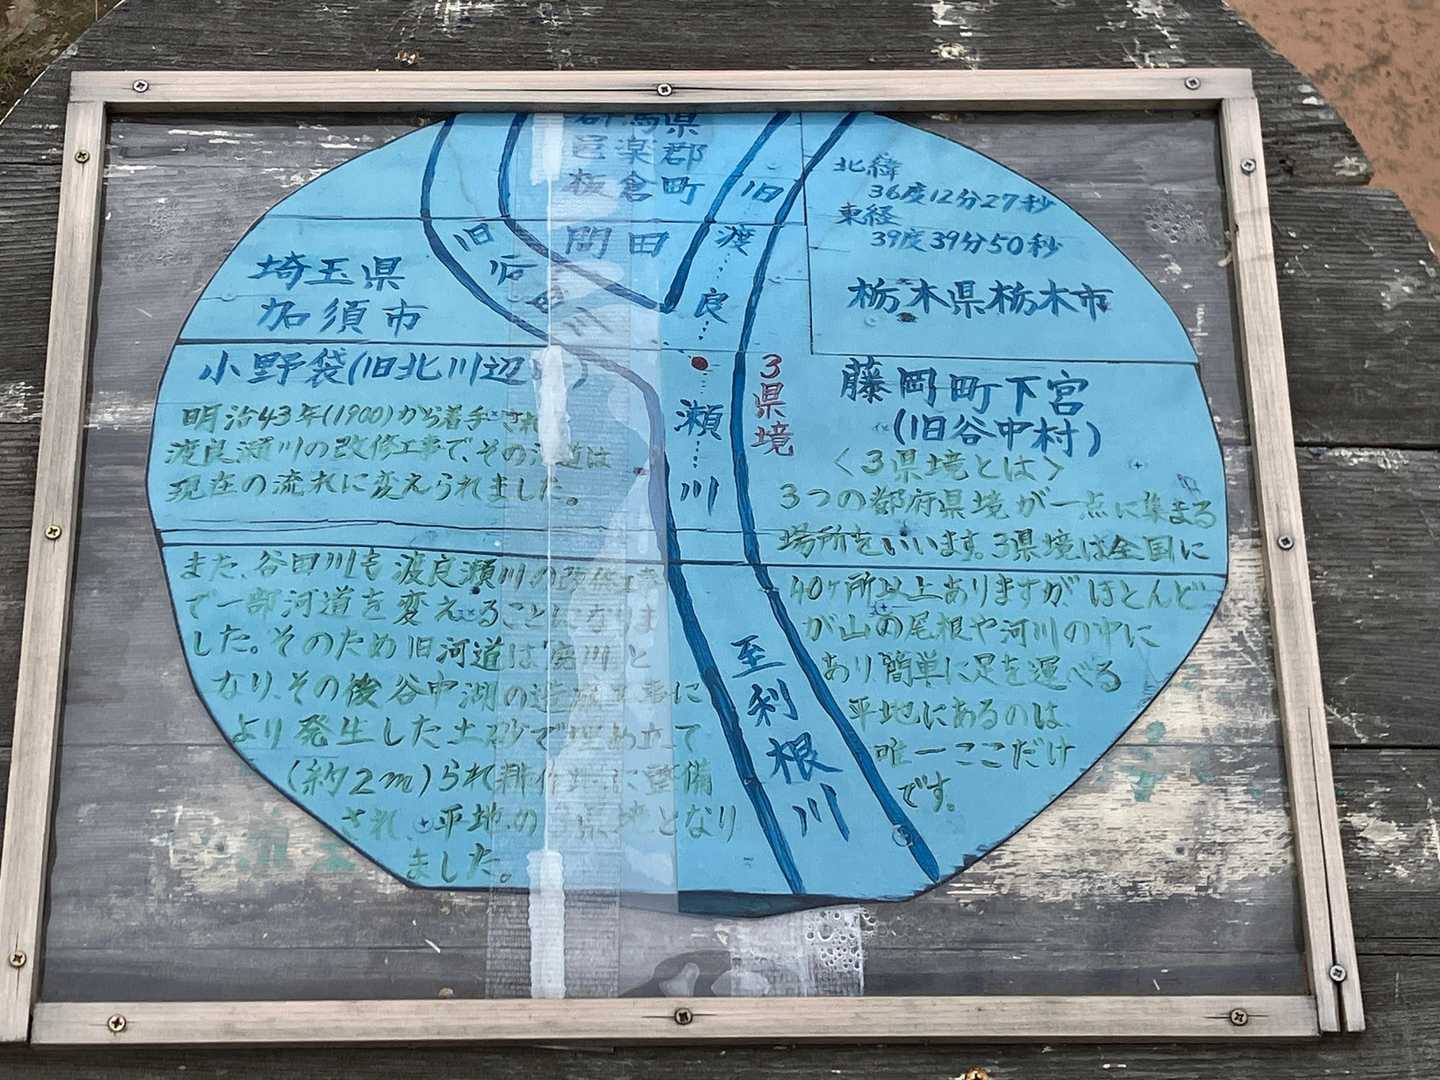 群馬県
邑楽郡
板倉町
岡田
旧
渡
良
瀬
川
北緯
36度12分27秒
東経
39度39分50秒
栃木県栃木市
藤岡町下宮
(旧谷中村)
埼玉県
加須市
小野袋(旧北川辺
旧
川
3県境
明治43年(1900)から着手され
渡良瀬川の改修工事で、その 道は
現在の流れに変えられました。
また、谷田川も渡良瀬川の改修工事
で一部河道を変えることになりま
した。そのため旧河道は廃川と
なり、その後谷中湖の造成工事に
より発生した土砂で埋め立て
(約2m)られ耕作地に整備
され、平地の 県境となり
ました。
<3県境とは>
3つの都府県境が一点に集まる
場所をいいます。3県境は全国に
40ヶ所以上ありますが、ほとんど
が山の尾根や河川の中に
あり簡単に足を運べる
平地にあるのは、
唯一ここだけ
です。
至利根川